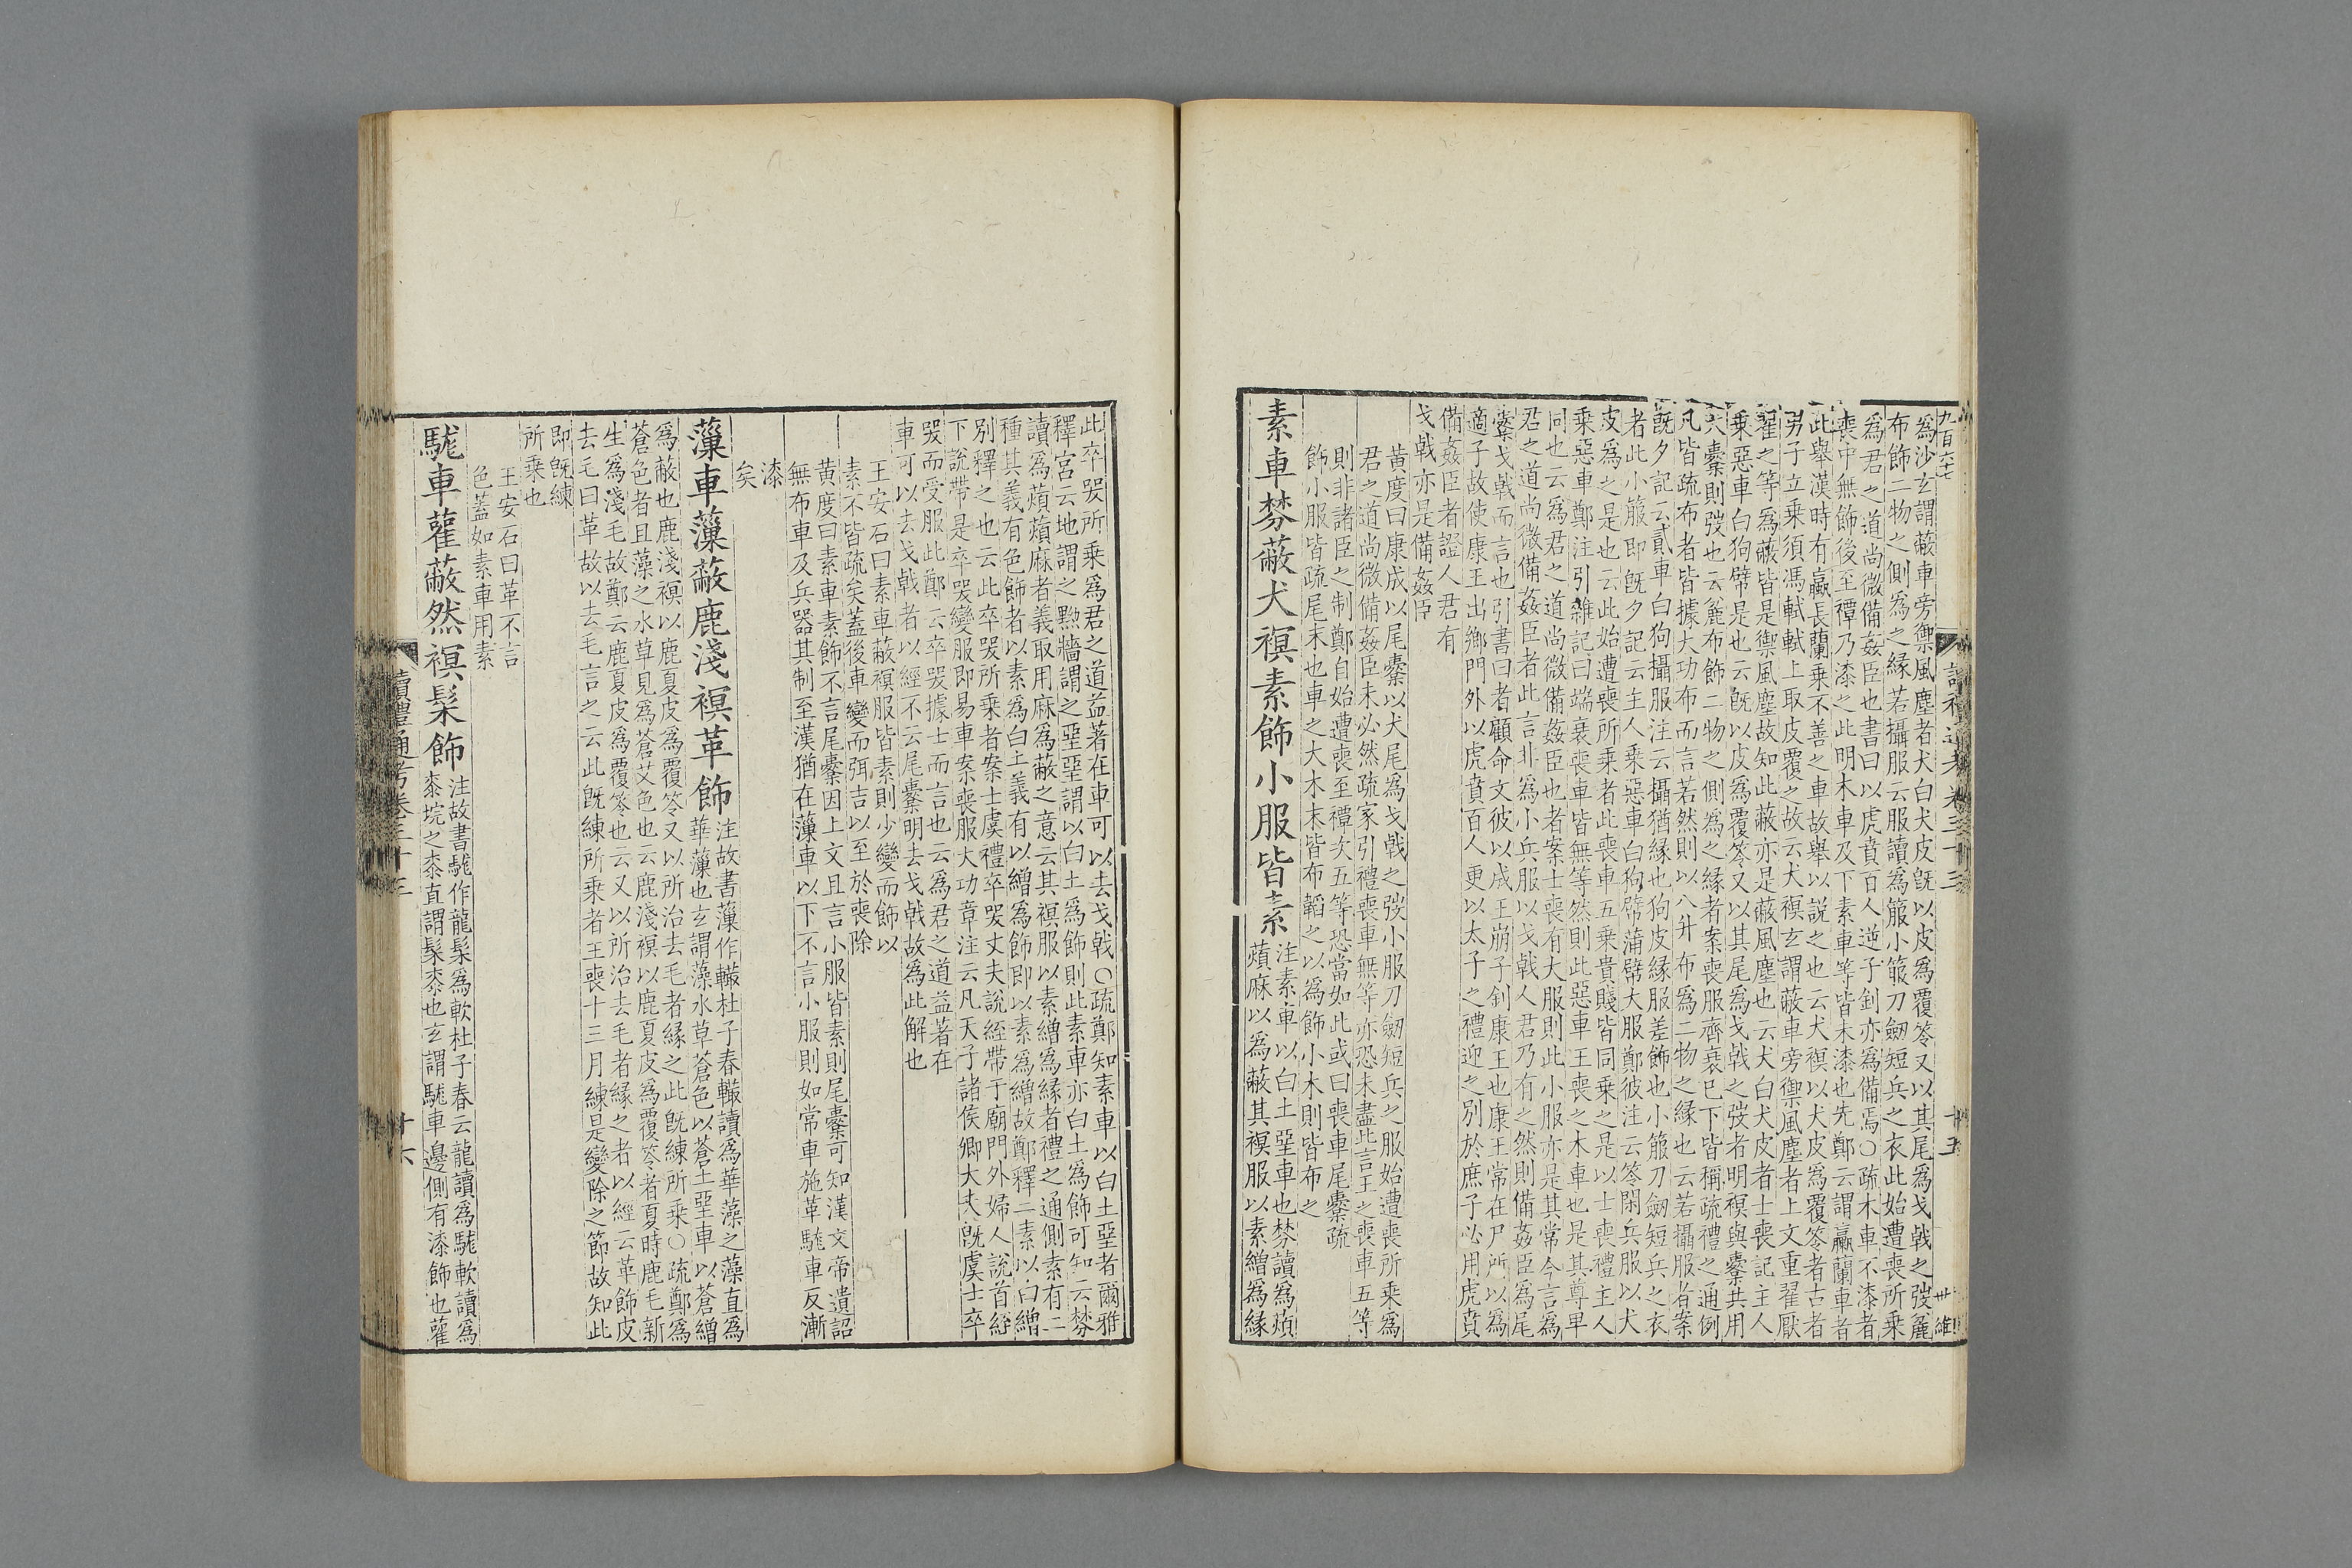 九百六十七
爲沙玄謂蔽車旁禦風塵者犬白犬皮旣以皮爲覆笭又以其尾爲戈戟之弢麤
布飾二物之側爲之緣若攝服云服讀爲箙小箙刀劒短兵之衣此始遭喪所乗
爲君之道尚微備姦臣也書曰以虎賁百人逆子釗亦爲備焉○疏木車不漆者
喪中無飾後至禫乃漆之此明木車及下素車等皆未漆也先鄭云謂蠃蘭車者
此舉漢時有蠃長蘭乗不善之車故舉以說之也云犬𧜀以犬皮爲覆笭者古者
男子立乗須馮軾軾上取皮覆之故云犬𧜀玄謂蔽車旁禦風塵者上文重翟厭
翟之等爲蔽皆是禦風塵故知此蔽亦是蔽風塵也云犬白犬皮者士喪記主人
乗惡車白狗幦是也云旣以皮爲覆笭又以其尾爲戈戟之弢者明𧜀與櫜共用
犬櫜則弢也云麤布飾二物之側爲之緣者案喪服齊衰巳下皆稱疏禮之通例
凡皆疏布者皆據大功布而言若然則以八升布爲二物之緣也云若攝服者案
旣夕記云貳車白狗攝服注云攝猶緣也狗皮緣服差飾也小箙刀劒短兵之衣
者此小箙即旣夕記云主人乗惡車白狗幦蒲幦大服鄭彼注云笭閒兵服以犬
皮爲之是也云此始遭喪所乗者此喪車五乗貴賤皆同乗之是以士喪禮主人
乗惡車鄭注引雜記曰端衰喪車皆無等然則此惡車王喪之木車也是其尊卑
同也云爲君之道尚微備姦臣也者案士喪有大服則此小服亦是其常今言爲
君之道尚微備姦臣者此言非爲小兵服以戈戟人君乃有之然則備姦臣爲尾
櫜戈戟而言也引書曰者顧命文彼以成王崩子釗康王也康王常在尸所以爲
適子故使康王出鄉門外以虎賁百人更以太子之禮迎之別於庶子必用虎賁
備姦臣者證人君有
戈戟亦是備姦臣
黃度曰康成以尾櫜以犬尾爲戈戟之弢小服刀劒短兵之服始遭喪所乗爲
君之道尚微備姦臣未必然疏家引禮喪車無等亦恐未盡此言王之喪車五等
則非諸臣之制鄭自始遭喪至禫次五等恐當如此或曰喪車尾櫜疏
飾小服皆疏尾末也車之大木末皆布韜之以爲飾小木則皆布之
素車棼蔽犬𧜀素飾小服皆素
注素車以白土堊車也棼讀爲薠
薠麻以爲蔽其𧜀服以素繒爲緣
此卒哭所乗爲君之道益著在車可以去戈戟○疏鄭知素車以白土堊者爾雅
釋宮云地謂之黝牆謂之堊堊謂以白土爲飾則此素車亦白土爲飾可知云棼
讀爲薠薠麻者義取用麻爲蔽之意云其𧜀服以素繒爲緣者禮之通側素有二
種其義有色飾者以素爲白土義有以繒爲飾即以素爲繒故鄭釋二素以白繒
別釋之也云此卒哭所乗者案士虞禮卒哭丈夫說絰帶于廟門外婦人說首絰
下說帶是卒哭變服即易車案喪服大功章注云凡天子諸侯卿大夫旣虞士卒
哭而受服此鄭云卒哭據士而言也云爲君之道益著在
車可以去戈戟者以經不云尾櫜明去戈戟故爲此解也
王安石曰素車蔽𧜀服皆素則少變而飾以
素不皆疏矣蓋後車變而弭吉以至於喪除
黃度曰素車素飾不言尾櫜因上文且言小服皆素則尾櫜可知漢文帝遺詔
無布車及兵器其制至漢猶在薻車以下不言小服則如常車施革駹車反漸
漆
矣
薻車薻蔽鹿淺𧜀革飾
注故書薻作轍杜子春轍讀爲華藻之藻直爲
華薻也玄謂藻水草蒼色以蒼土堊車以蒼繒
爲蔽也鹿淺𧜀以鹿夏皮爲覆笭又以所治去毛者緣之此旣練所乗○疏鄭爲
蒼色者且藻之水草見爲蒼艾色也云鹿淺𧜀以鹿夏皮爲覆笭者夏時鹿毛新
生爲淺毛故鄭云鹿夏皮爲覆笭也云又以所治去毛者緣之者以經云革飾皮
去毛曰革故以去毛言之云此旣練所乗者王喪十三月練是變除之節故知此
即旣練
所乗也
王安石曰革不言
色蓋如素車用素
駹車雚蔽然𧜀髤飾
注故書駹作龍髤爲軟杜子春云龍讀爲駹軟讀爲
桼垸之桼直謂髤桼也玄謂駹車邊側有漆飾也雚
讀禮通考卷三十三
十六